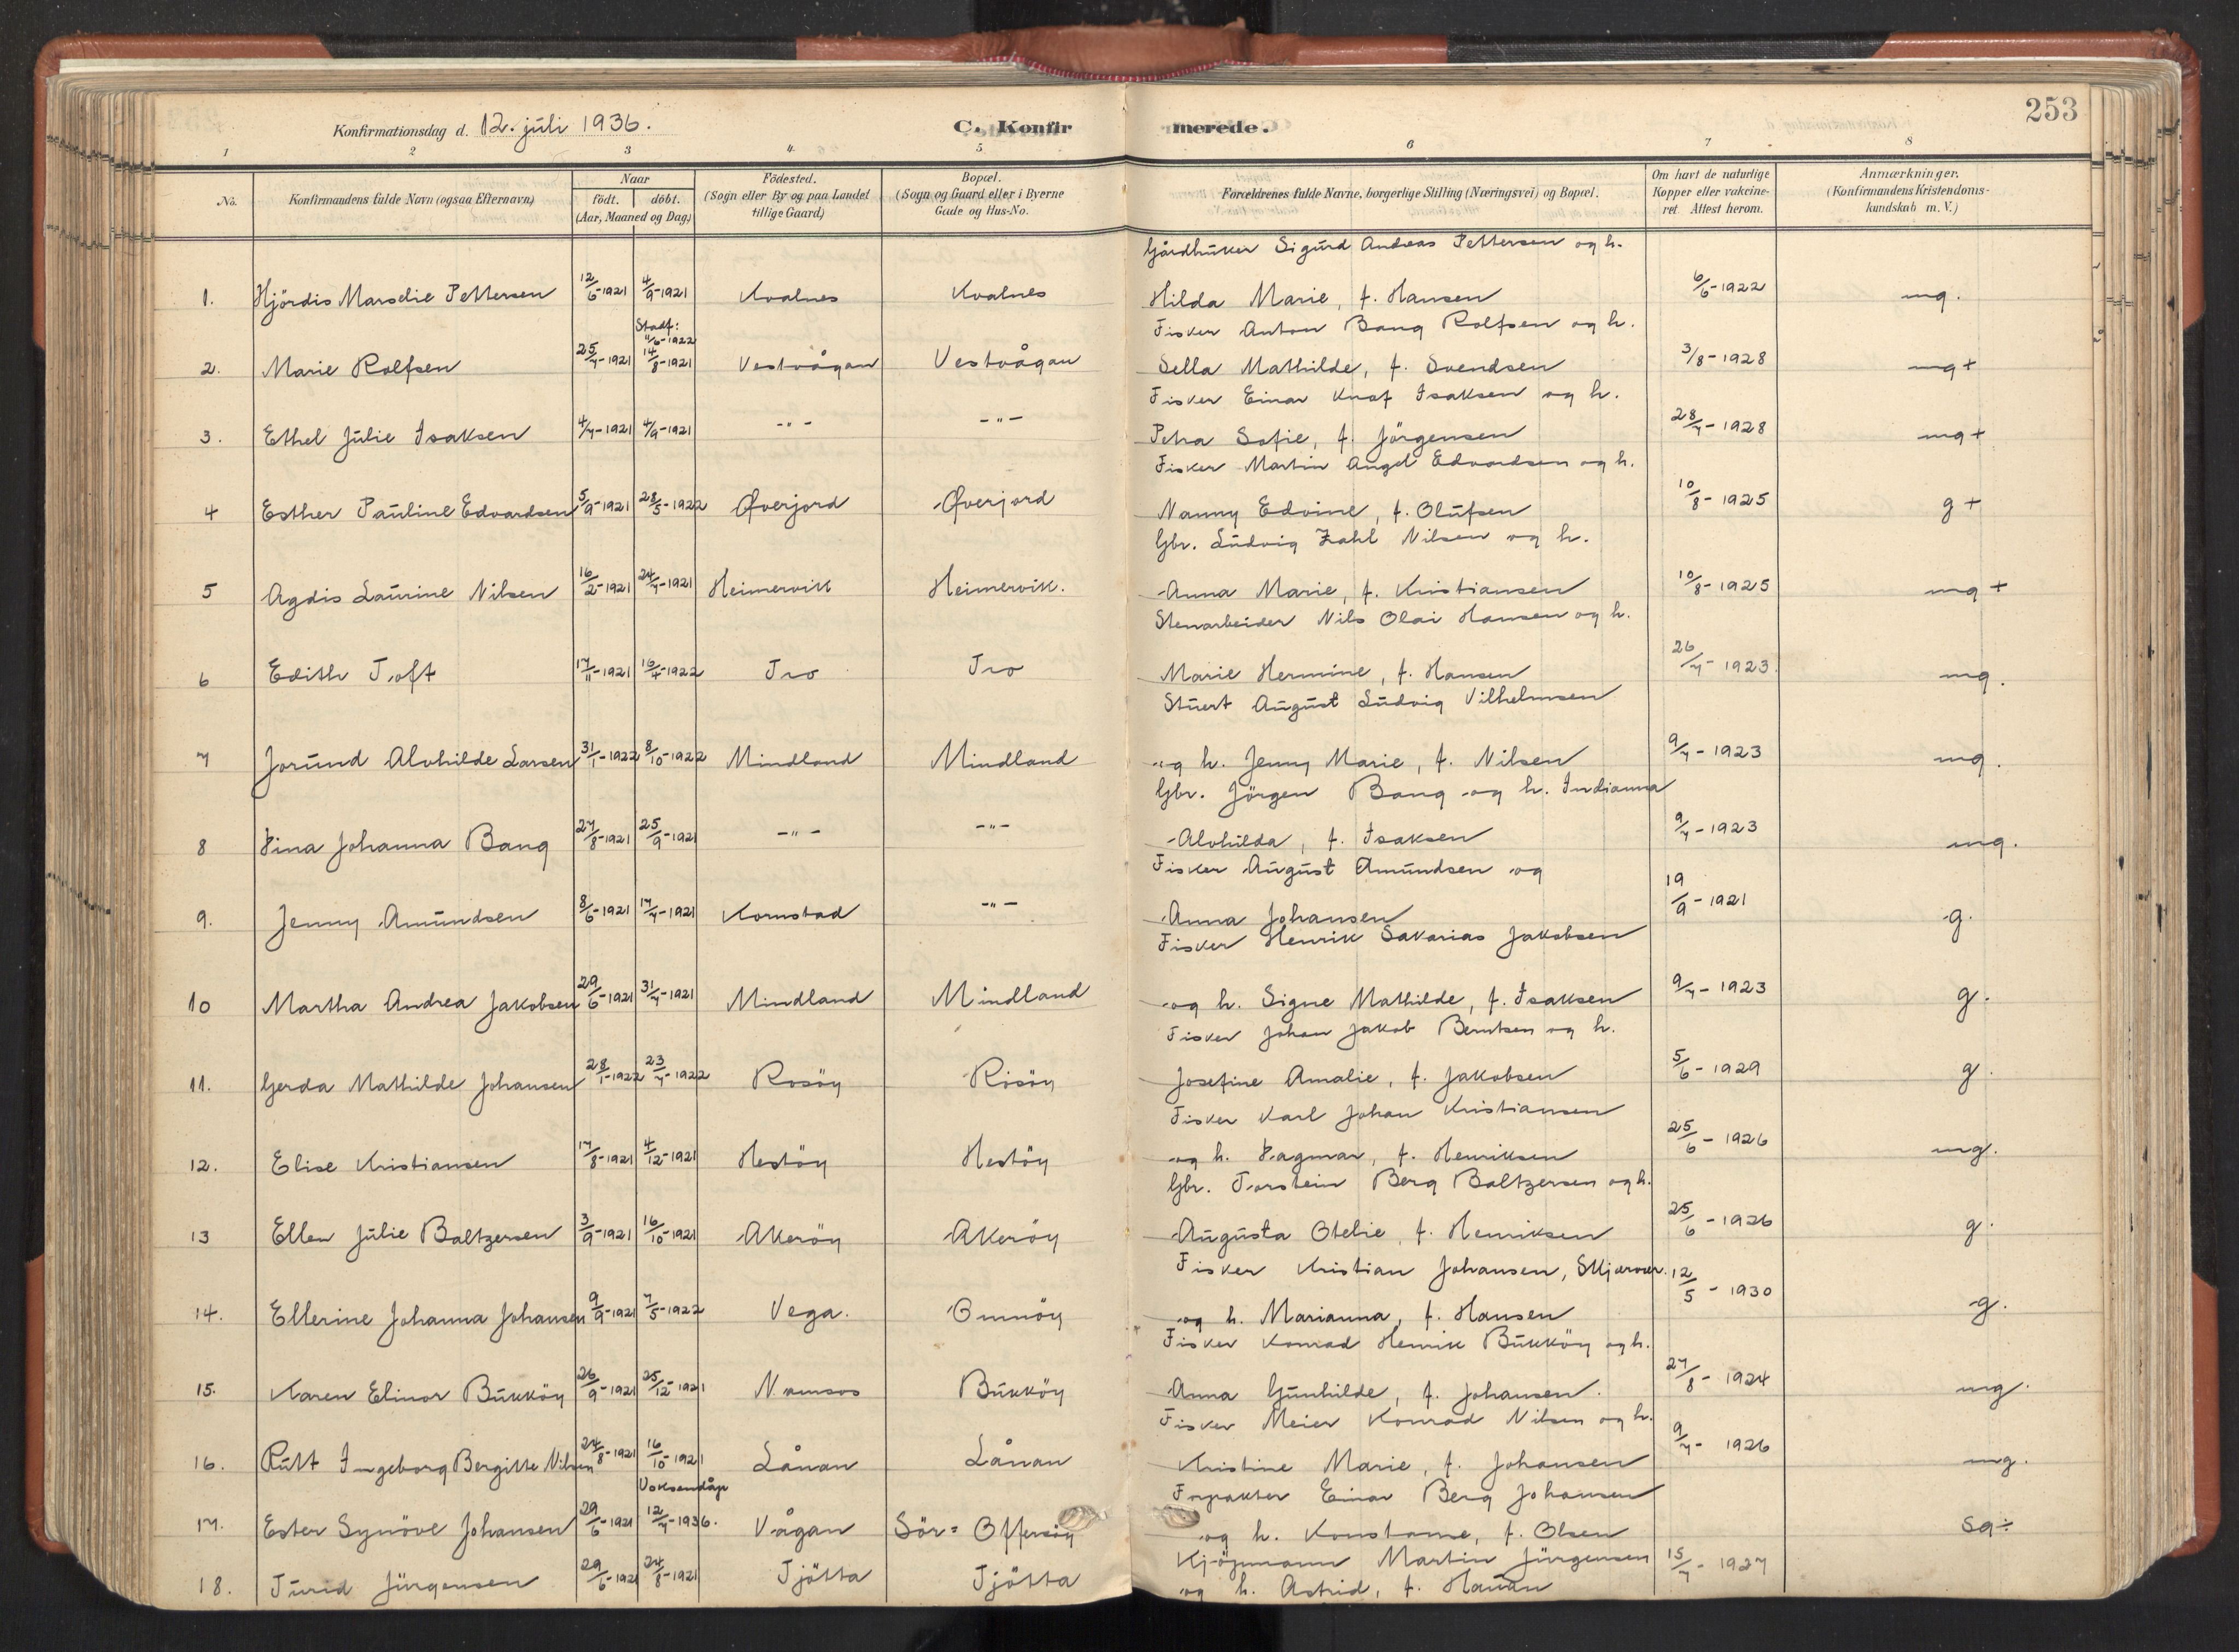 253
Konfirmationsdag d. 12. juli 1936. C. Konfirmerede.
1 2 3 4 5 6 7 8
No. Konfirmandens fulde Navn (ogsaa Efternavn) Naar født. døbt. (Aar, Maaned og Dag) Fødested. (Sogn eller By og paa Landet tillige Gaard) Bopæl. (Sogn og Gaard eller i Byerne Gade og Hus-No. Forældrenes fulde Navne, borgerlige Stilling (Næringsvei) og Bopæl. Om havt de naturlige Kopper eller vakcineret. Attest herom. Anmærkninger. (Konfirmandens Kristendomskundskab m. V.)
Gårdbruker Sigurd Andreas Pettersen og h.
1. Hjördis Marselie Pettersen 12/6-1921 4/9-1921 Kvalnes Kvalnes Hilda Marie, f. Hansen 6/6-1922 mg.
Stadf: 11/6-1922 Fisker Anton Bang Rolfsen og h.
2. Marie Rolfsen 25/7-1921 14/8-1921 Vestvågan Vestvågan Sella Mathilde, f. Svendsen 3/8-1928 mg+
Fisker Einar Knof Isaksen og h.
3. Ethel Julie Isaksen 4/7-1921 4/9-1921 -"- -"- Petra Sofie, f. Jörgensen 28/7-1928 mg+
Fisker Martin Angel Edvardsen og h.
4 Esther Pauline Edvardsen 5/9-1921 28/5-1922 Øverjord Øverjord Nanny Edvine, f. Olufsen 10/8-1925 g+
Gbr. Ludvig Zahl Nilsen og h.
5 Agdis Laurine Nilsen 16/2-1921 24/7-1921 Heimervik Heimervik. Anna Marie, f. Kristiansen 10/8-1925 mg+
Stenarbeider Nils Olai Hansen og h.
6 Edith Toft 17/11-1921 16/4-1922 Tro Tro Marie Hermine, f. Hansen 26/7-1923. mg.
Stuert August Ludvig Vilhelmsen
7 Jorund Alvhilde Larsen 31/1-1922 8/10-1922 Mindland Mindland og h. Jenny Marie, f. Nilsen 9/7-1923 mg.
Gbr. Jörgen Bang og h. Indianna
8 Dina Johanna Bang 27/8-1921 25/9-1921 -"- -"- Alvhilda, f. Isaksen 9/7-1923 mg.
Fisker August Amundsen og
9. Jenny Amundsen 8/6-1921 17/7-1921 Kornstad -"- Anna Johansen 19/9-1921 g.
Fisker Henrik Sakarias Jakobsen
10 Martha Andrea Jakobsen 29/6-1921 31/7-1921 Mindland Mindland og h. Signe Mathilde, f. Isaksen 9/7-1923 g.
Fisker Johan Jakob Berntsen og h.
11. Gerda Mathilde Johansen 28/1-1922 23/7-1922 Rosöy Risöy Josefine Amalie, f. Jakobsen 5/6-1929 g.
Fisker Karl Johan Kristiansen
12. Elise Kristiansen 17/8-1921 4/12-1921 Hestöy Hestöy og h. Dagmar, f. Henriksen 25/6-1926 mg.
Gbr. Torstein Berg Baltzersen og h.
13 Ellen Julie Baltzersen 3/9-1921 16/10-1921 Akeröy Akeröy Augusta Otelie, f. Henriksen 25/6-1926 g.
Fisker Kristian Johansen, Skjærvær.
14. Ellerine Johanna Johansen 9/9-1921 7/5-1922 Vega. Omnöy og h. Marianna, f. Hansen 12/5-1930 g.
Fisker Konrad Henrik Bukköy og h.
15. Karen Elinor Bukköy 26/9-1921 25/12-1921 Namsos Bukköy Anna Gunhilde, f. Johansen. 27/8-1924 mg.
Fisker Meier Konrad Nilsen og h.
16. Rutt Ingeborg Bergitte Nilsen 24/8-1921 16/10-1921 Lånan Lånan Kristine Marie, f. Johansen 9/7-1926 mg.
Voksendåp Forpakter Einar Berg Johansen
17. Ester Synöve Johansen 29/6-1921 12/7-1936. Vågan Sör=Offersöy og h. Konstanse, f. Olsen sg÷
Kjöpmann Martin Jürgensen
18. Turid Jürgensen 29/6-1921 24/8-1921 Tjötta Tjötta og h. Astrid, f. Hanan 15/7-1927